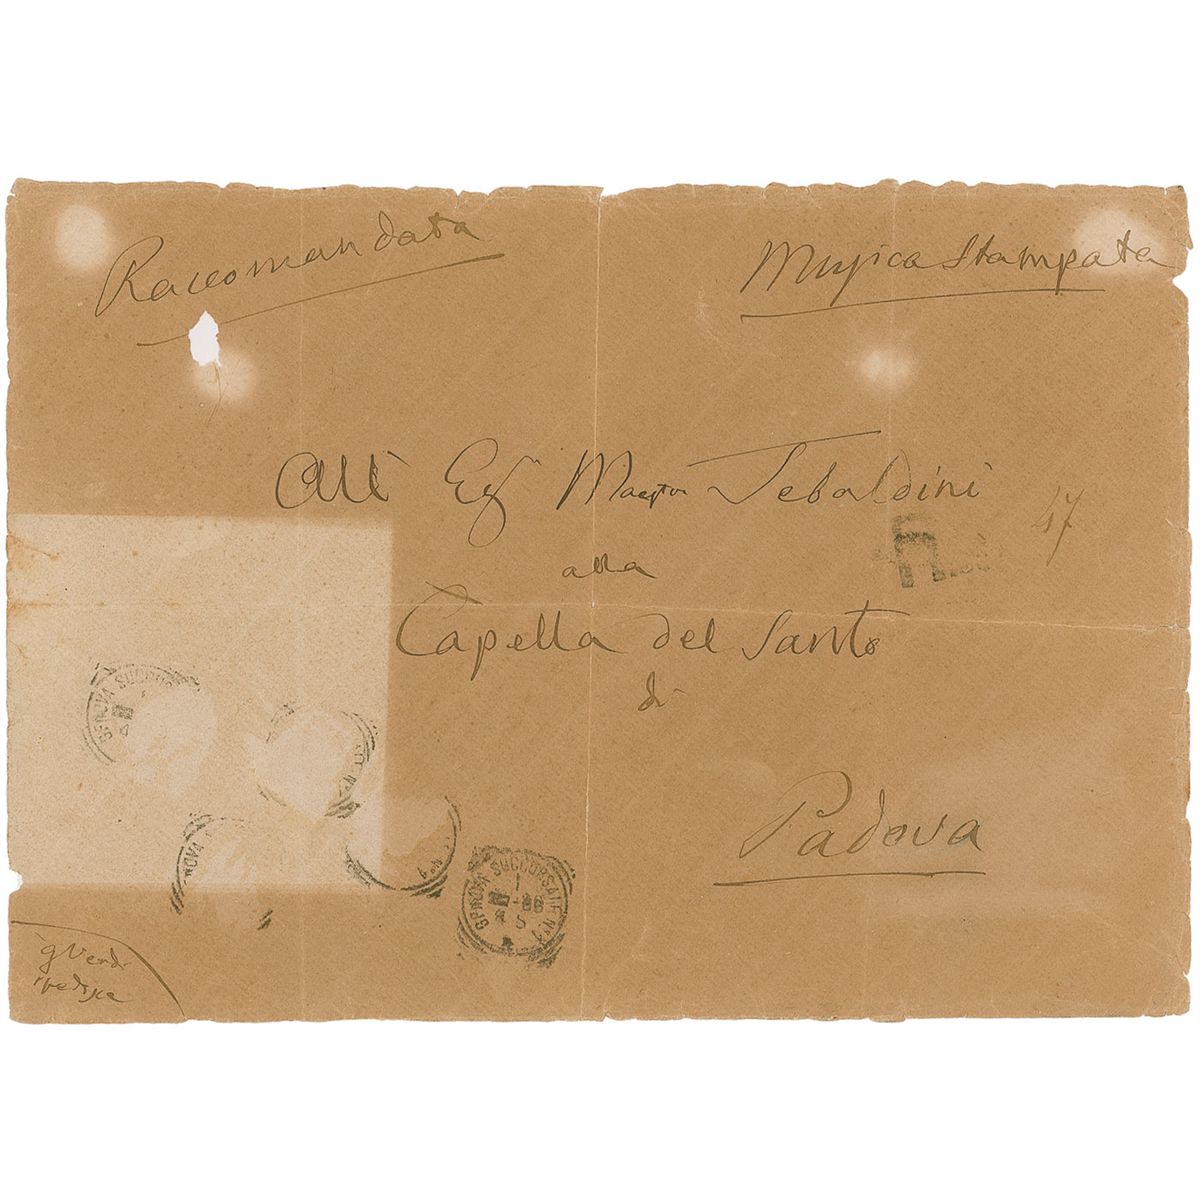 Raccomandata
Musica Stampata
All' Eg Maestro Tebaldini
47
alla
Capella del Santo
di
Padova
GENOVA SUCCURSALE
GENOVA SUCCURSALE N° 1
G Verdi
spedisce